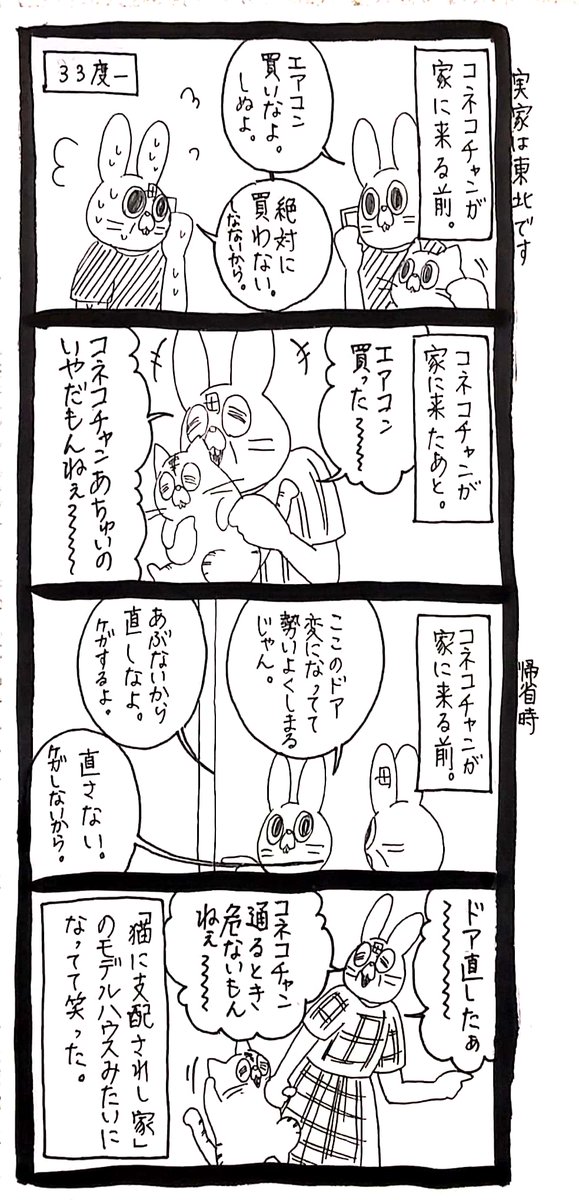 実家は東北です
コネコチャンが
家に来る前。
エアコン
買いなよ。
しぬよ。
33度ー
絶対に
買わない。
しなないから。
母
コネコチャンが
家に来たあと。
エアコン
買った〜〜〜
母
コネコチャンあちゅいの
いやだもんねぇ〜〜〜
帰省時
コネコチャンが
家に来る前。
ここのドア
変になってて
勢いよくしまる
じゃん。
あぶないから
直しなよ。
ケガするよ。
母
直さない。
ケガしないから。
ドア直したぁ
〜〜〜
母
コネコチャン
通るとき
危ないもん
ねぇ〜〜〜
「猫に支配されし家」
のモデルハウスみたいに
なってて笑った。